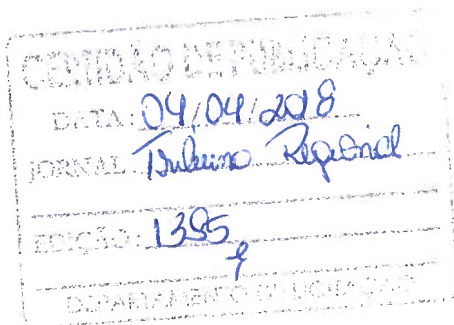 CERTIDÃO DE PUBLICAÇÃO
DATA: 04/04/2018
JORNAL: Tribuna Regional
EDIÇÃO: 1385
DEPARTAMENTO DE